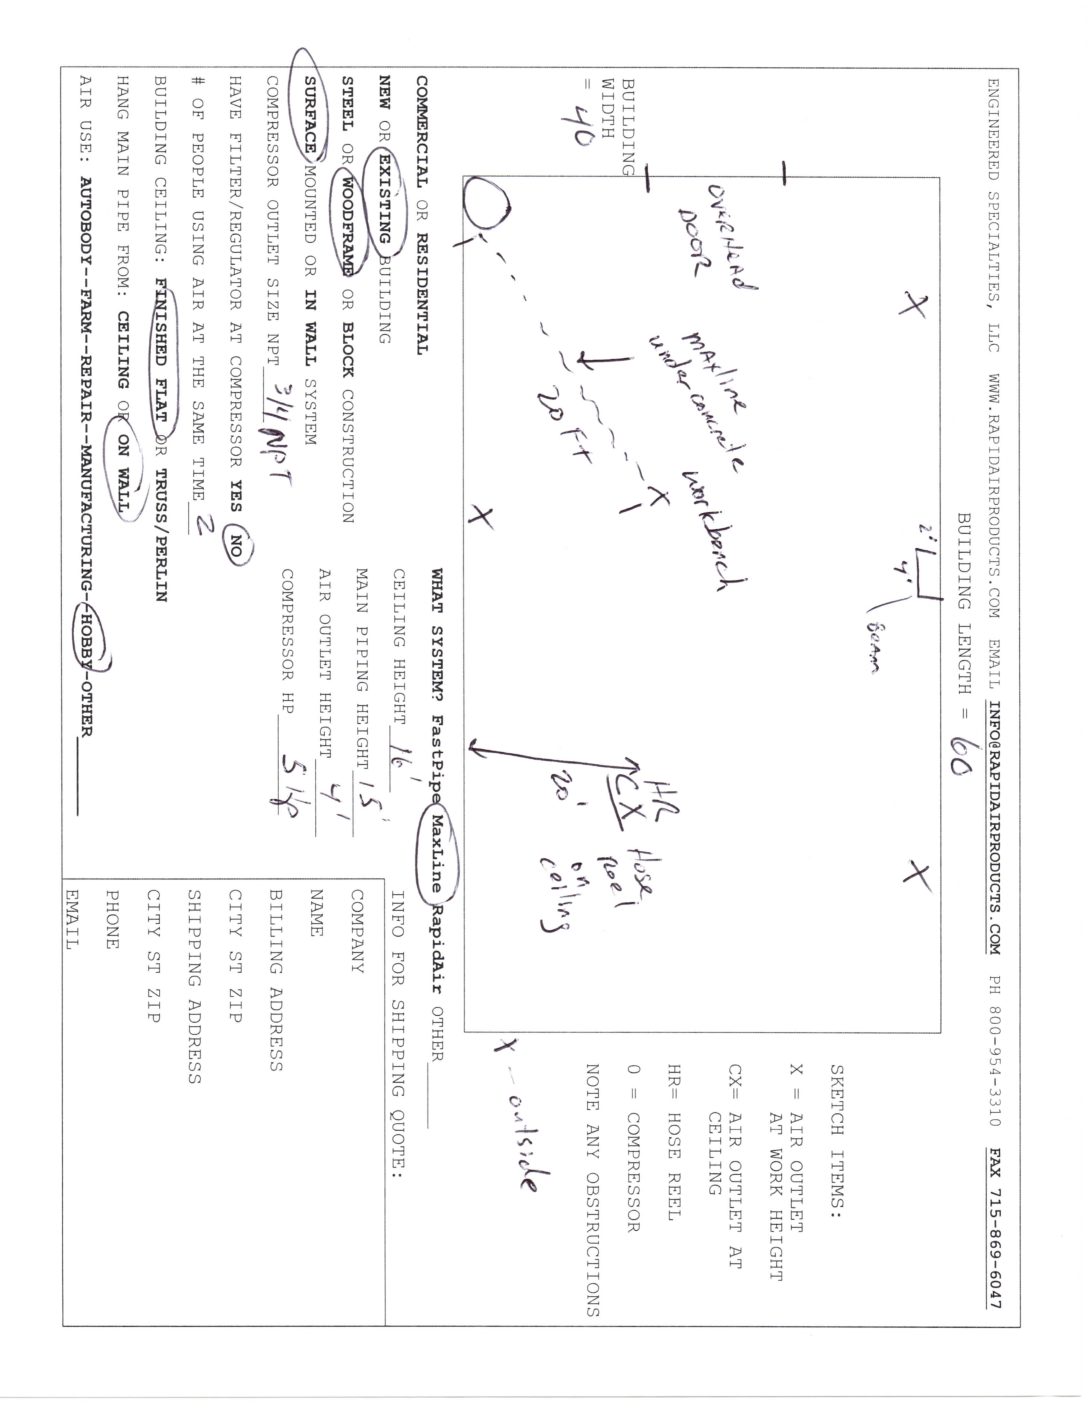 ENGINEERED SPECIALTIES, LLC WWW.RAPIDAIRPRODUCTS.COM EMAIL INFO@RAPIDAIRPRODUCTS.COM PH 800-954-3310 FAX 715-869-6047
BUILDING LENGTH = 60
2'
4'
Beam
BUILDING
WIDTH
= 40
OVERHEAD
DOOR
X
X
MAxline
under concrete
workbench
X
20 FT
X
HR
CX
20'
Hose
Reel
on
ceiling
X -- outside
SKETCH ITEMS:
X = AIR OUTLET
AT WORK HEIGHT
CX= AIR OUTLET AT
CEILING
HR= HOSE REEL
O = COMPRESSOR
NOTE ANY OBSTRUCTIONS
COMMERCIAL OR RESIDENTIAL
NEW OR EXISTING BUILDING
STEEL OR WOODFRAME OR BLOCK CONSTRUCTION
SURFACE MOUNTED OR IN WALL SYSTEM
COMPRESSOR OUTLET SIZE NPT 3/4 NPT
HAVE FILTER/REGULATOR AT COMPRESSOR YES NO
# OF PEOPLE USING AIR AT THE SAME TIME 2
BUILDING CEILING: FINISHED FLAT OR TRUSS/PERLIN
HANG MAIN PIPE FROM: CEILING OR ON WALL
AIR USE: AUTOBODY--FARM--REPAIR--MANUFACTURING--HOBBY-OTHER
WHAT SYSTEM? FastPipe MaxLine RapidAir OTHER
CEILING HEIGHT 16'
MAIN PIPING HEIGHT 15'
AIR OUTLET HEIGHT 4'
COMPRESSOR HP 5 Hp
INFO FOR SHIPPING QUOTE:
COMPANY
NAME
BILLING ADDRESS
CITY ST ZIP
SHIPPING ADDRESS
CITY ST ZIP
PHONE
EMAIL